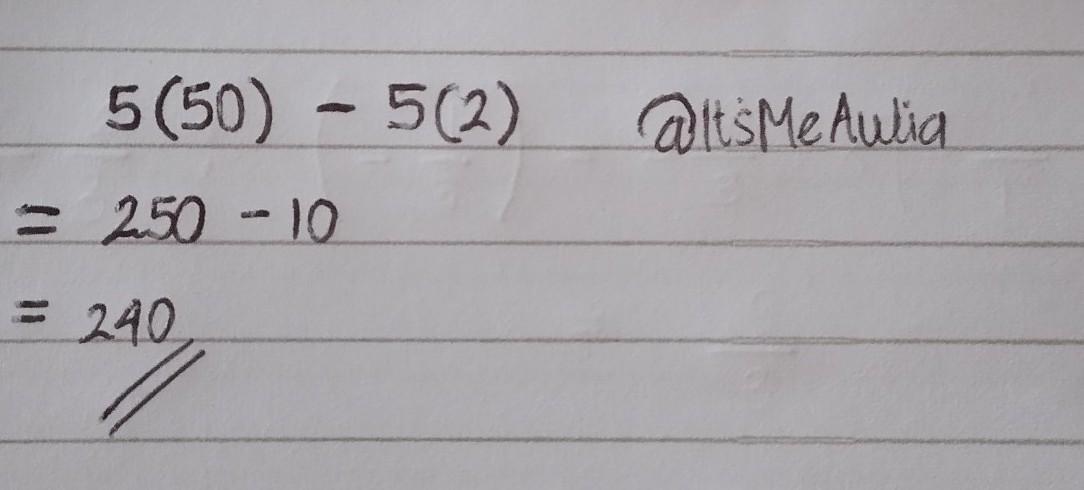 5(50) - 5(2) @It'sMeAulia
= 250 - 10
= 240